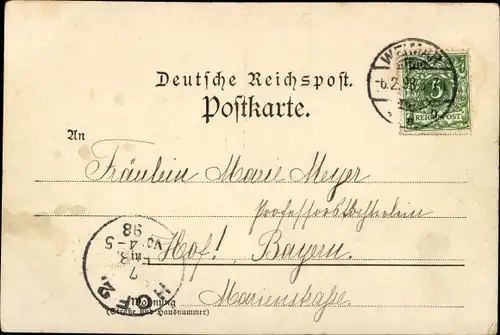 WEIMAR
6.2.98
3
REICHSPOST
Deutsche Reichspost.
Postkarte.
An
Fräulein Marie Meyer
Professorstochterlein
Hof! Bayern.
in
Marienstraße
Wohnung
(Straße und Hausnummer)
HOF 2.
7
4-5
98